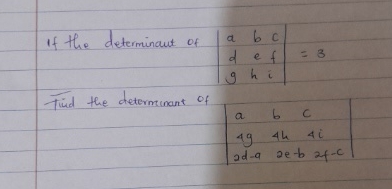 If the determinant of | a b c |
| d e f | = 3
| g h i |
Find the determinant of
| a b c |
| 4g 4h 4i |
| 2d-a 2e-b 2f-c |